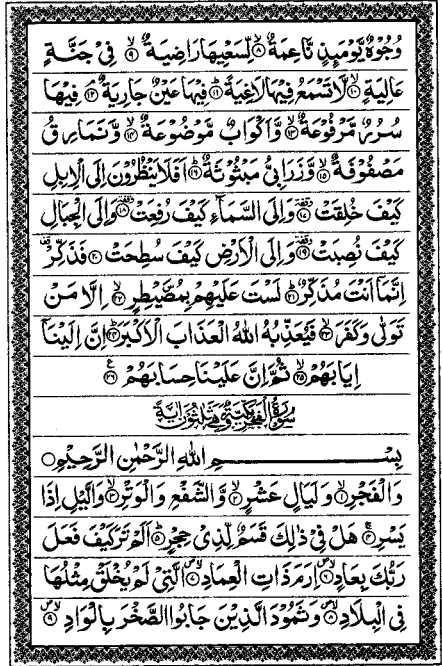 وُجُوْهٌ يَّوْمَىِٕذٍ نَّاعِمَةٌ ۙ۸ لِّسَعْيِهَا رَاضِيَةٌ ۙ۹ فِيْ جَنَّةٍ
عَالِيَةٍ ۙ۱۰ لَّا تَسْمَعُ فِيْهَا لَاغِيَةً ؕ۱۱ فِيْهَا عَيْنٌ جَارِيَةٌ ۘ۱۲ فِيْهَا
سُرُرٌ مَّرْفُوْعَةٌ ۙ۱۳ وَّاَكْوَابٌ مَّوْضُوْعَةٌ ۙ۱۴ وَّنَمَارِقُ
مَصْفُوْفَةٌ ۙ۱۵ وَّزَرَابِيُّ مَبْثُوْثَةٌ ؕ۱۶ اَفَلَا يَنْظُرُوْنَ اِلَى الْاِبِلِ
كَيْفَ خُلِقَتْ ۱۷ وَاِلَى السَّمَآءِ كَيْفَ رُفِعَتْ ۱۸ وَاِلَى الْجِبَالِ
كَيْفَ نُصِبَتْ ۱۹ وَاِلَى الْاَرْضِ كَيْفَ سُطِحَتْ ۲۰ فَذَكِّرْ
اِنَّمَاۤ اَنْتَ مُذَكِّرٌ ؕ۲۱ لَسْتَ عَلَيْهِمْ بِمُصَۜيْطِرٍ ۙ۲۲ اِلَّا مَنْ
تَوَلّٰى وَكَفَرَ ۙ۲۳ فَيُعَذِّبُهُ اللّٰهُ الْعَذَابَ الْاَكْبَرَ ؕ۲۴ اِنَّ اِلَيْنَاۤ
اِيَابَهُمْ ۙ۲۵ ثُمَّ اِنَّ عَلَيْنَا حِسَابَهُمْ ۲۶
سُوْرَةُ الْفَجْرِ مَكِّيَّةٌ وَّهِيَ ثَلٰثُوْنَ اٰيَةً
بِسْمِ اللّٰهِ الرَّحْمٰنِ الرَّحِيْمِ
وَالْفَجْرِ ۙ۱ وَلَيَالٍ عَشْرٍ ۙ۲ وَّالشَّفْعِ وَالْوَتْرِ ۙ۳ وَالَّيْلِ اِذَا
يَسْرِ ۚ۴ هَلْ فِيْ ذٰلِكَ قَسَمٌ لِّذِيْ حِجْرٍ ؕ۵ اَلَمْ تَرَ كَيْفَ فَعَلَ
رَبُّكَ بِعَادٍ ۶ اِرَمَ ذَاتِ الْعِمَادِ ۷ الَّتِيْ لَمْ يُخْلَقْ مِثْلُهَا
فِي الْبِلَادِ ۸ وَثَمُوْدَ الَّذِيْنَ جَابُوا الصَّخْرَ بِالْوَادِ ۹